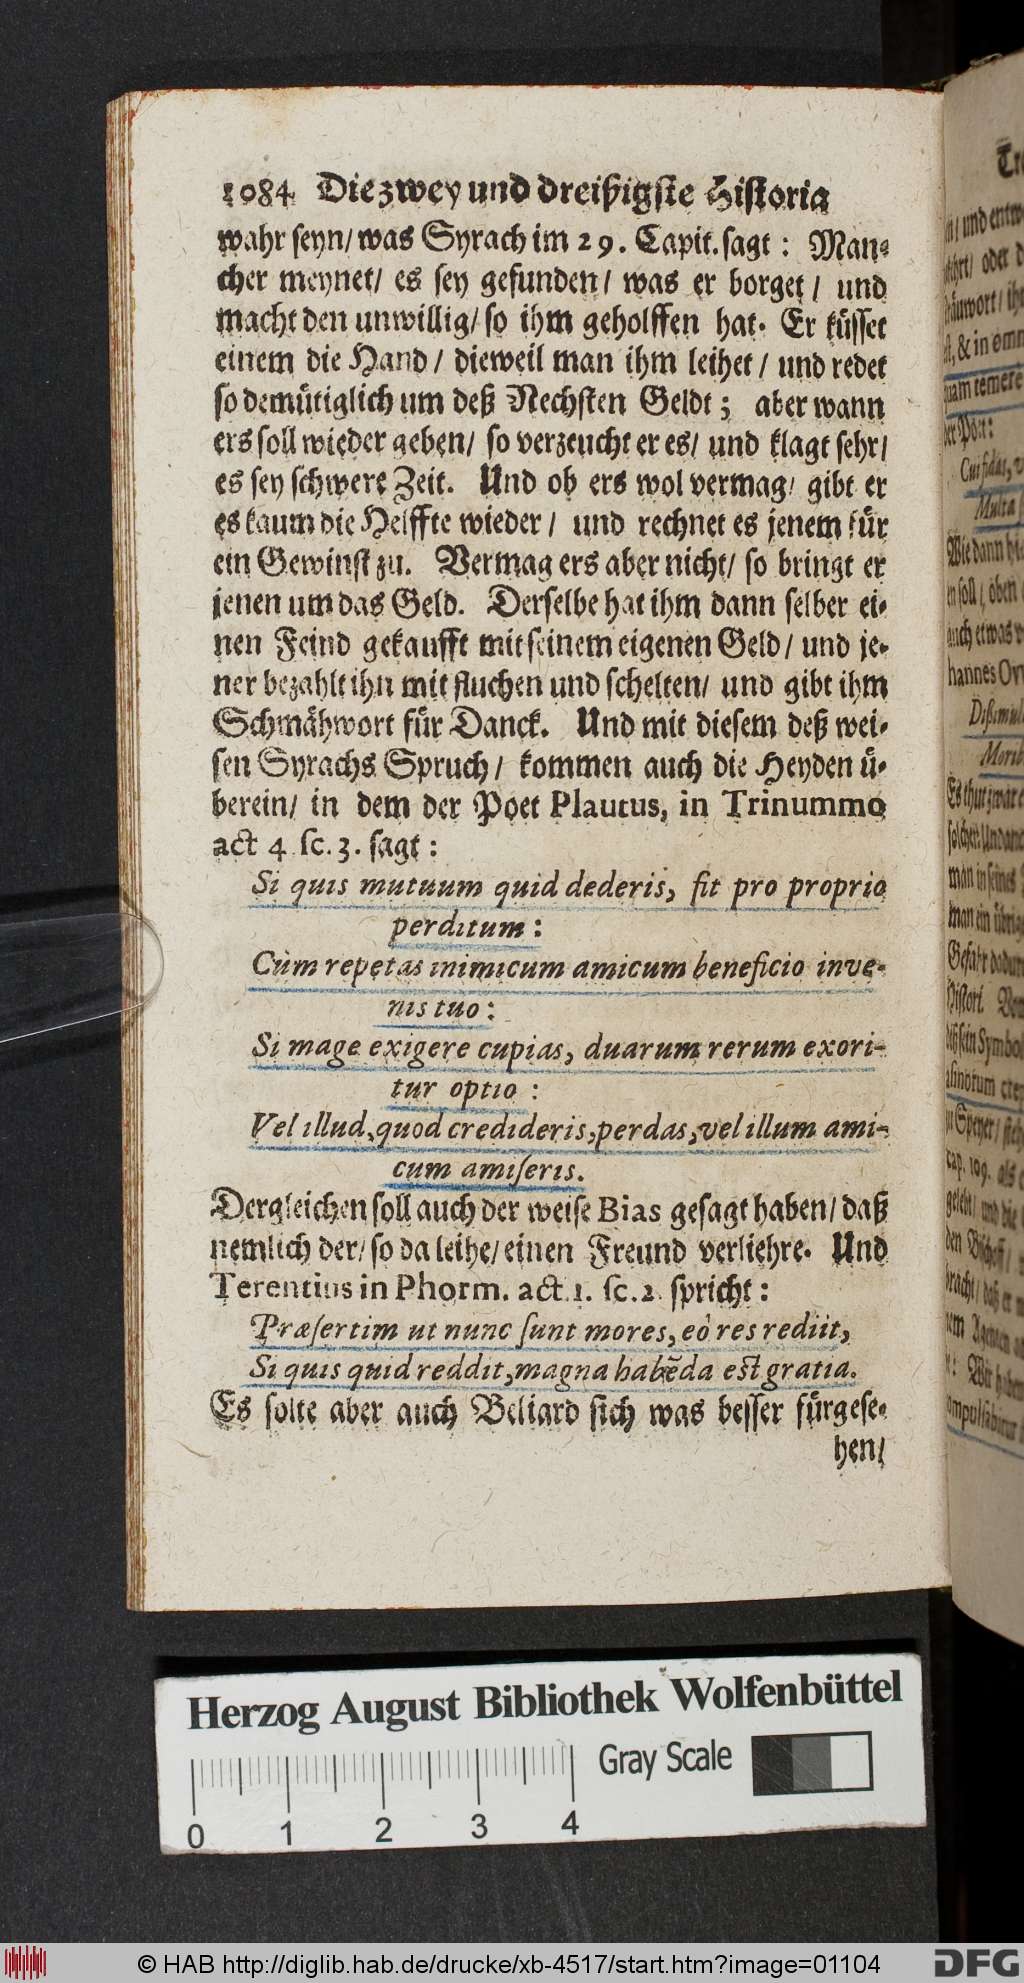 1084 Die zwey und dreißigste Historia
wahr seyn/ was Syrach im 29. Capit. sagt: Man-
cher meynet/ es sey gefunden/ was er borget/ und
macht den unwillig/ so ihm geholffen hat. Er küsset
einem die Hand/ dieweil man ihm leihet/ und redet
so demütiglich um deß Nechsten Geldt; aber wann
ers soll wieder geben/ so verzeucht er es/ und klagt sehr/
es sey schwere Zeit. Und ob ers wol vermag/ gibt er
es kaum die Helffte wieder/ und rechnet es jenem für
ein Gewinst zu. Vermag ers aber nicht/ so bringt er
jenen um das Geld. Derselbe hat ihm dann selber ei-
nen Feind gekaufft mit seinem eigenen Geld/ und je-
ner bezahlt ihn mit fluchen und schelten/ und gibt ihm
Schmähwort für Danck. Und mit diesem deß wei-
sen Syrachs Spruch/ kommen auch die Heyden ü-
berein/ in dem der Poet Plautus, in Trinummo
act 4 sc. 3. sagt:
Si quis mutuum quid dederis, fit pro proprio
perditum:
Cùm repetas inimicum amicum beneficio inve-
nis tuo:
Si mage exigere cupias, duarum rerum exori-
tur optio:
Vel illud, quod credideris, perdas, vel illum ami-
cum amiseris.
Dergleichen soll auch der weise Bias gesagt haben/ daß
nemlich der/ so da leihe/ einen Freund verliehre. Und
Terentius in Phorm. act. 1. sc. 2. spricht:
Præsertim ut nunc sunt mores, eò res rediit,
Si quis quid reddit, magna habẽda est gratia.
Es solte aber auch Beliard sich was besser fürgese-
hen/
Herzog August Bibliothek Wolfenbüttel
Gray Scale
0 1 2 3 4
© HAB http://diglib.hab.de/drucke/xb-4517/start.htm?image=01104
DFG